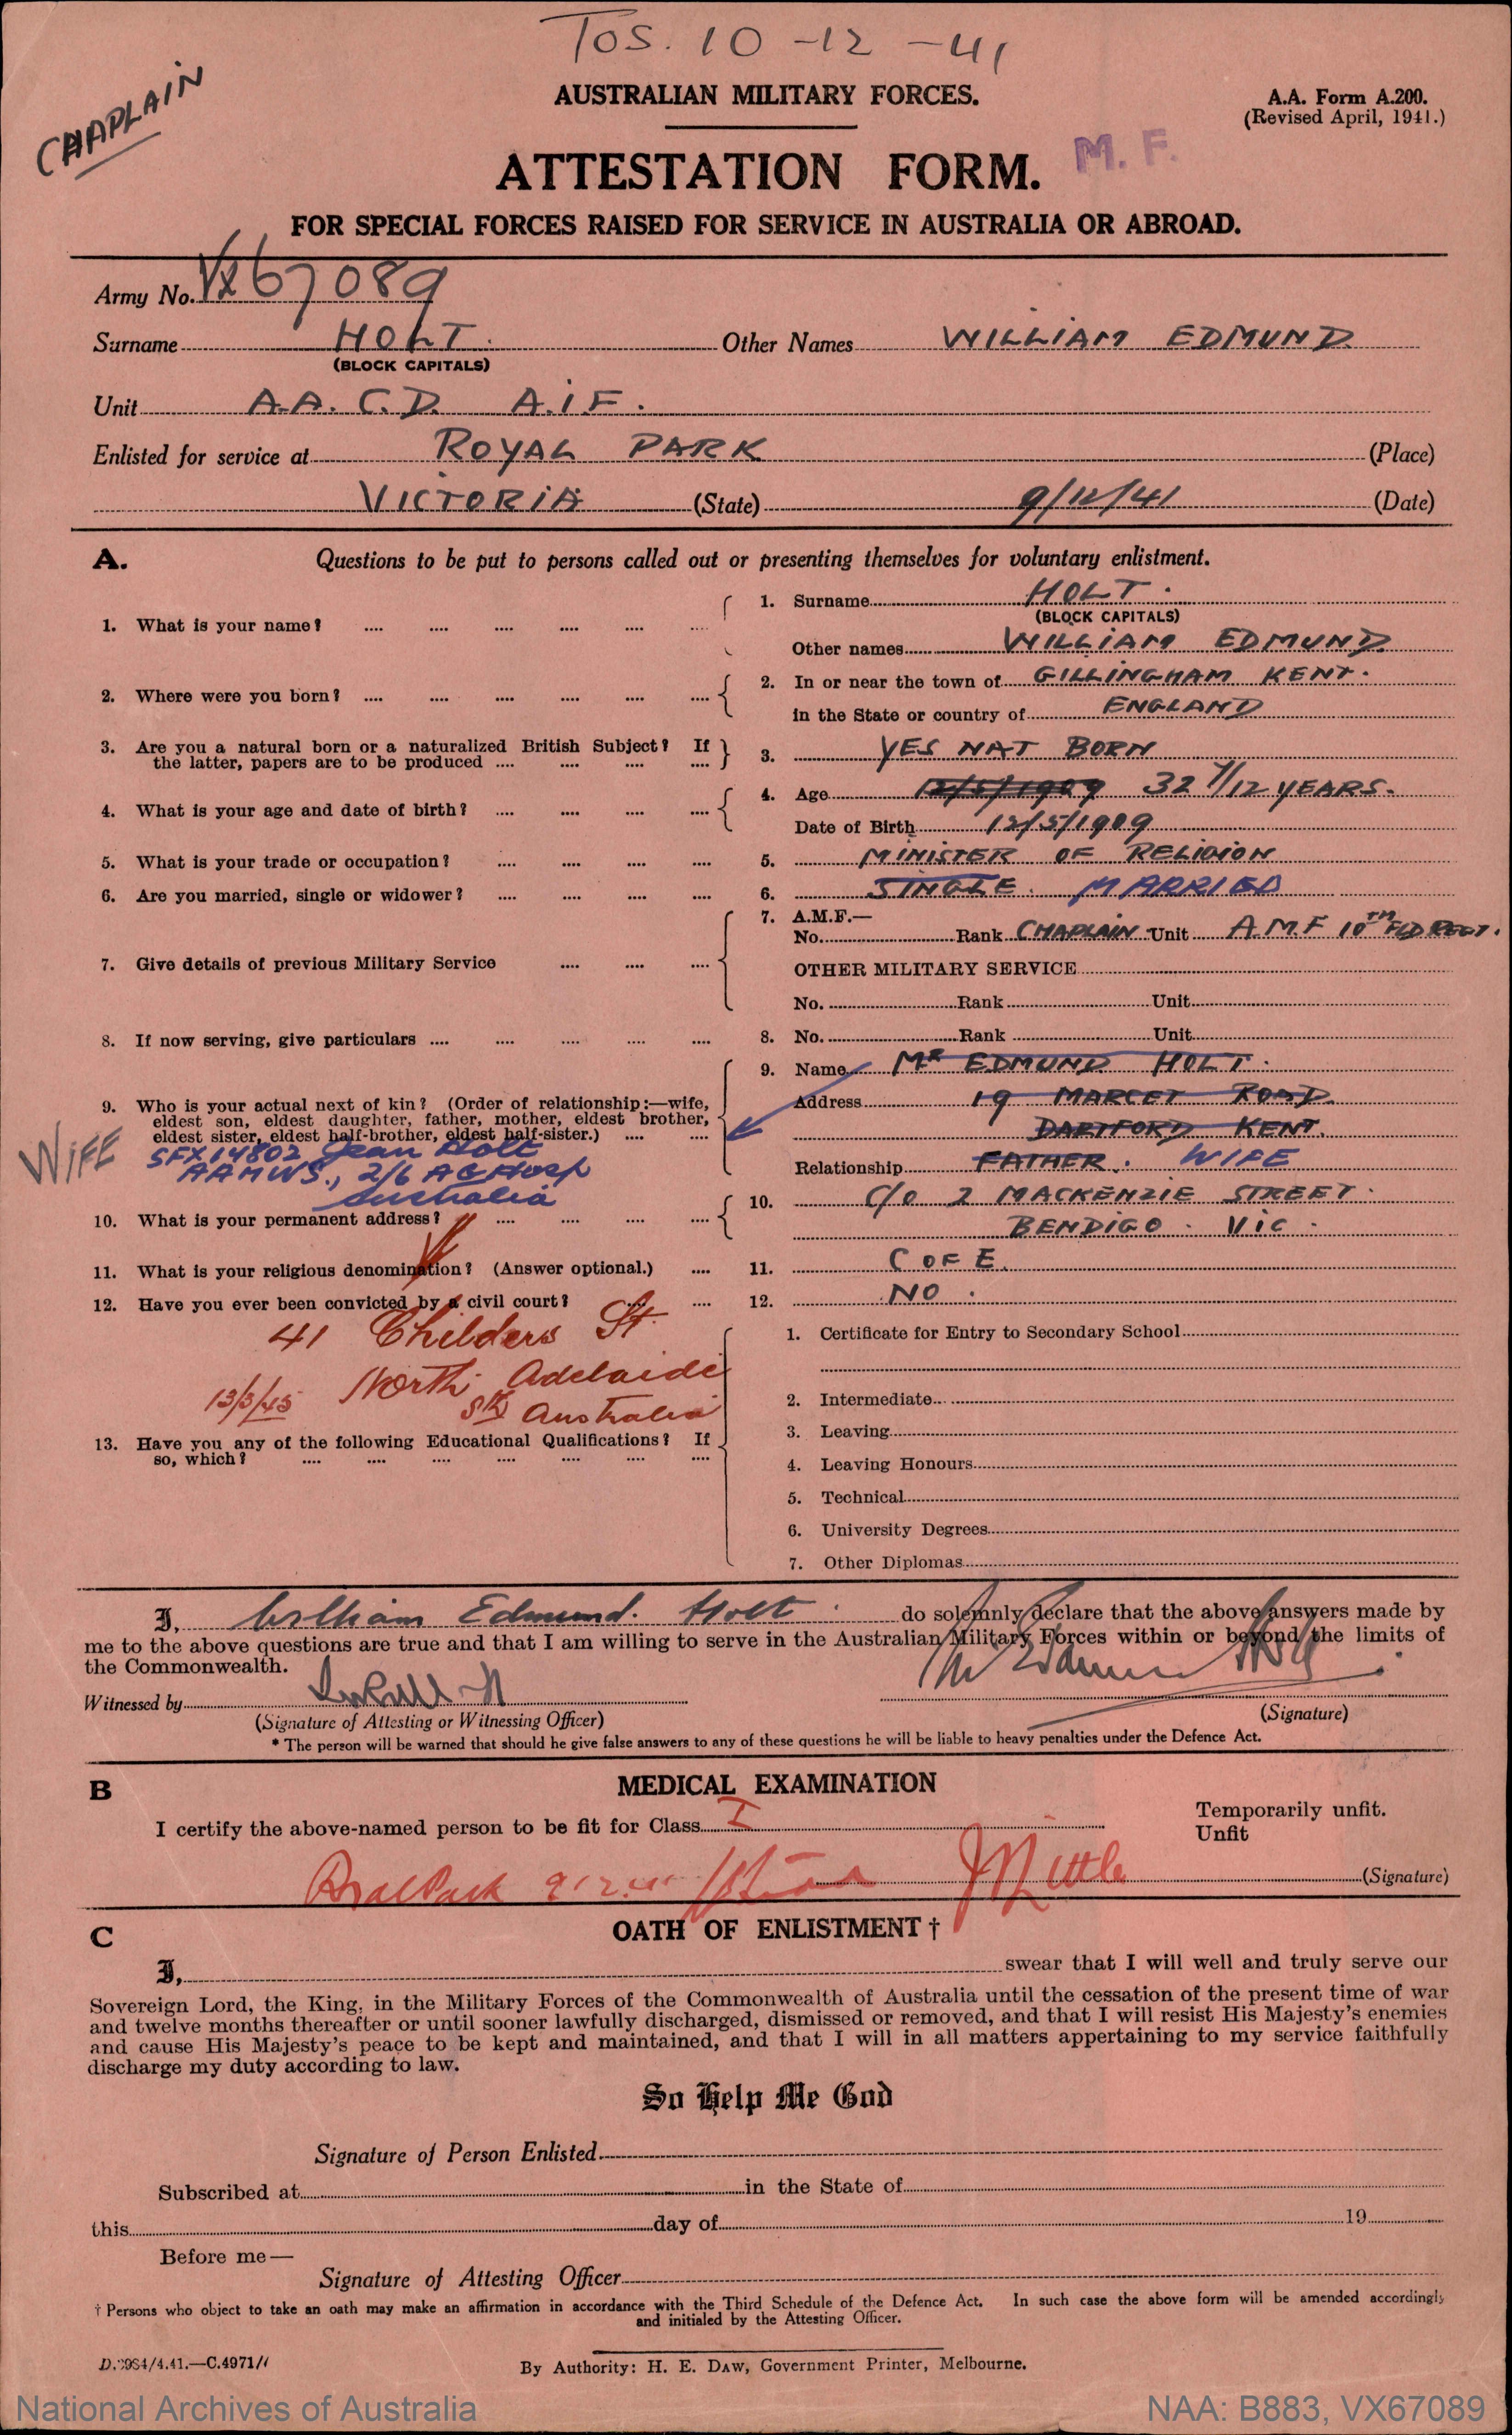 TOS. 10-12-41
CHAPLAIN
AUSTRALIAN MILITARY FORCES.
A.A. Form A.200.
(Revised April, 1941.)
ATTESTATION FORM.
M. F.
FOR SPECIAL FORCES RAISED FOR SERVICE IN AUSTRALIA OR ABROAD.
Army No. VX67089
Surname HOLT. Other Names WILLIAM EDMUND
(BLOCK CAPITALS)
Unit A.A. C.D. A.I.F.
Enlisted for service at ROYAL PARK (Place)
VICTORIA (State) 9/12/41 (Date)
A. Questions to be put to persons called out or presenting themselves for voluntary enlistment.
1. What is your name? .... .... .... .... .... ....
1. Surname HOLT.
(BLOCK CAPITALS)
Other names WILLIAM EDMUND
2. Where were you born? .... .... .... .... .... ....
2. In or near the town of GILLINGHAM KENT.
in the State or country of ENGLAND
3. Are you a natural born or a naturalized British Subject? If
the latter, papers are to be produced .... .... .... ....
3. YES NAT BORN
4. What is your age and date of birth? .... .... .... ....
4. Age 12/5/1909 32 7/12 YEARS.
Date of Birth 12/5/1909
5. What is your trade or occupation? .... .... .... ....
5. MINISTER OF RELIGION
6. Are you married, single or widower? .... .... .... ....
6. SINGLE. MARRIED
7. Give details of previous Military Service .... .... ....
7. A.M.F.—
No. Rank CHAPLAIN Unit A.M.F 10TH FLD REGT.
OTHER MILITARY SERVICE
No. Rank Unit
8. If now serving, give particulars .... .... .... .... ....
8. No. Rank Unit
9. Who is your actual next of kin? (Order of relationship:—wife,
eldest son, eldest daughter, father, mother, eldest brother,
eldest sister, eldest half-brother, eldest half-sister.) .... ....
9. Name MR EDMUND HOLT.
Address 19 MARCET ROAD
DARTFORD KENT.
Relationship FATHER. WIFE
WIFE
SFX14802 Jean Holt
AAMWS., 2/6 A G Hosp
Australia
10. What is your permanent address? .... .... .... ....
10. C/o 2 MACKENZIE STREET.
BENDIGO. VIC.
11. What is your religious denomination? (Answer optional.) ....
11. C OF E.
12. Have you ever been convicted by a civil court? .... ....
12. NO.
41 Childers St
North Adelaide
13/3/45
Sth Australia
13. Have you any of the following Educational Qualifications? If
so, which? .... .... .... .... .... .... ....
1. Certificate for Entry to Secondary School
2. Intermediate
3. Leaving
4. Leaving Honours
5. Technical
6. University Degrees
7. Other Diplomas
I, William Edmund. Holt. do solemnly declare that the above answers made by
me to the above questions are true and that I am willing to serve in the Australian Military Forces within or beyond the limits of
the Commonwealth.
W Edmund Holt.
Witnessed by
(Signature of Attesting or Witnessing Officer) (Signature)
* The person will be warned that should he give false answers to any of these questions he will be liable to heavy penalties under the Defence Act.
B MEDICAL EXAMINATION
I certify the above-named person to be fit for Class I
Temporarily unfit.
Unfit
Royal Park 9.12.41 (Signature)
C OATH OF ENLISTMENT †
I, swear that I will well and truly serve our
Sovereign Lord, the King, in the Military Forces of the Commonwealth of Australia until the cessation of the present time of war
and twelve months thereafter or until sooner lawfully discharged, dismissed or removed, and that I will resist His Majesty's enemies
and cause His Majesty's peace to be kept and maintained, and that I will in all matters appertaining to my service faithfully
discharge my duty according to law.
So Help Me God
Signature of Person Enlisted
Subscribed at in the State of
this day of 19
Before me—
Signature of Attesting Officer
† Persons who object to take an oath may make an affirmation in accordance with the Third Schedule of the Defence Act. In such case the above form will be amended accordingly
and initialed by the Attesting Officer.
By Authority: H. E. DAW, Government Printer, Melbourne.
National Archives of Australia
NAA: B883, VX67089